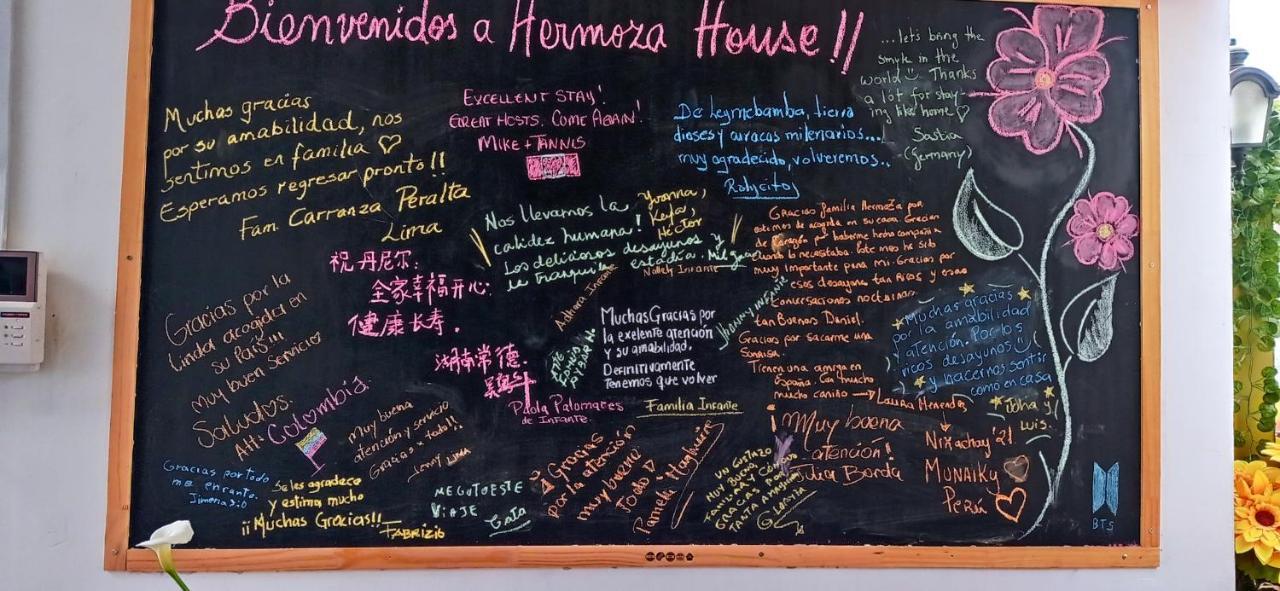 Bienvenidos a Hermoza House!!
Muchas gracias
por su amabilidad, nos
sentimos en familia ♡
Esperamos regresar pronto!!
Fam. Carranza Peralta
Lima
EXCELLENT STAY!
GREAT HOSTS. COME AGAIN!
MIKE + TANNIS
De Leymebamba, tierra
dioses y curacas milenarios...
muy agradecido, volveremos..
Ralycitos
...let's bring the
smyle in the
world Thanks
a lot for stay-
ing like home ♡
Saskia
(Germany)
Nos llevamos la
calidez humana!
Los deliciosos desayunos y
la tranquila estadía. Mil
Yvonna,
Keyla,
Héctor
Gracias familia Hermoza por
de corazón por haberme hecho compañía
cuando lo necesitaba. Este mes ha sido
muy importante para mi. Gracias por
esos desayunos tan Ricos y esas
conversaciones nocturnas
tan Buenas Daniel.
Gracias por sacarme una
Sonrisa.
Tienen una amiga en
España. Con mucho
mucho cariño → Laura Menendes
祝丹尼尔:
全家幸福开心.
健康长寿.
湖南常德.
Gracias por la
linda acogida en
su País!!!
muy buen servicio
Saludos.
Att: Colombia.
Nallely Infante
Anthara Infante
Jhanny Infante
Muchas Gracias por
la exelente atención
y su amabilidad.
Definitivamente
Tenemos que volver
Paola Palomares
de Infante.
Familia Infante
Muchas gracias
por la amabilidad
y atención. Por los
ricos desayunos
y hacernos sentir
como en casa
Joha y
Luis.
Muy buena
atención y servicio
Gracias x todo!!
Jenny Lima
Gracias por todo
me encanto.
Jimena
Se les agradece
y estima mucho
¡¡Muchas Gracias!!
Fabrizio
ME GUTO ESTE
VIAJE
Cata
Gracias
por la atención
muy bueno
todo
Pamela
UN GUSTAZO
MUY BUENA
GRACIAS POR
TANTA AMABILIDAD
Glorya
¡Muy buena
atención!
Julia Borda
Nixachay '21
MUNAIKY
Perú
BTS